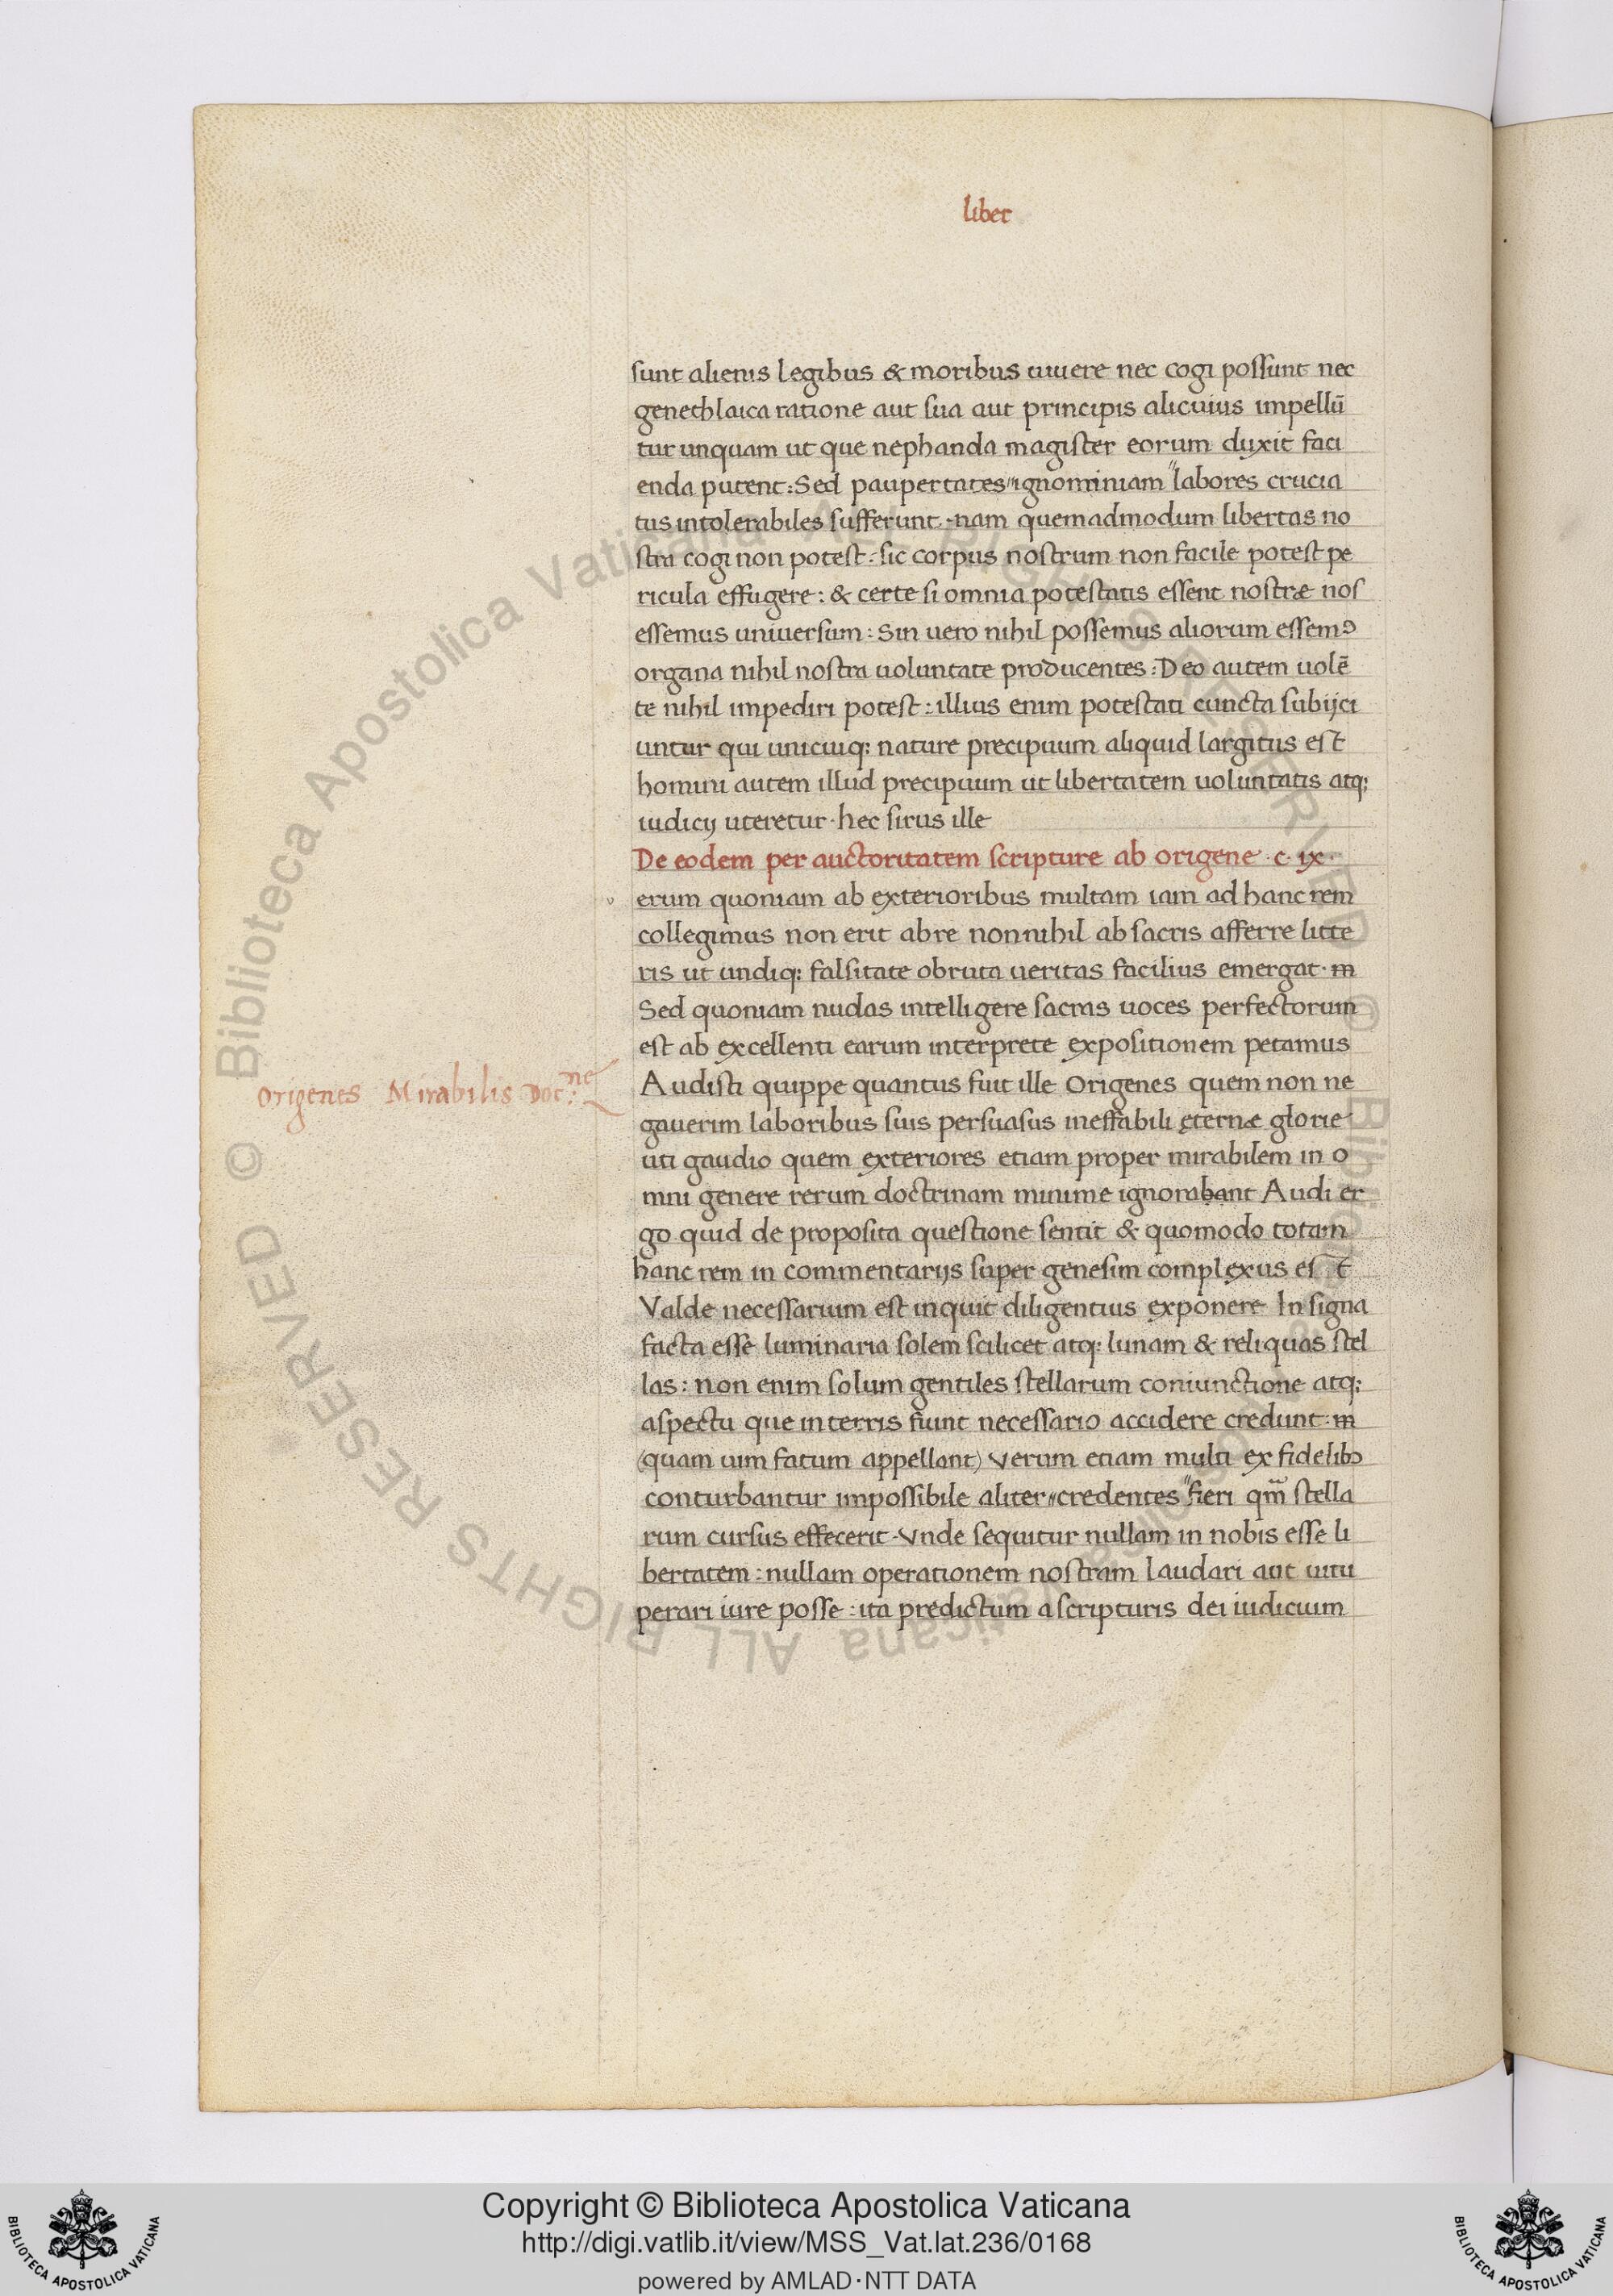 liber
sunt alienis legibus & moribus uiuere nec cogi possunt nec
genethlaica ratione aut sua aut principis alicuius impellū
tur unquam ut que nephanda magister eorum duxit faci
enda putent: Sed paupertates ignominiam labores crucia
tus intolerabiles sufferunt. nam quemadmodum libertas no
stra cogi non potest: sic corpus nostrum non facile potest pe
ricula effugere: & certe si omnia potestatis essent nostræ nos
essemus uniuersum: Sin uero nihil possemus aliorum essemꝰ
organa nihil nostra uoluntate producentes: Deo autem uolē
te nihil impediri potest: illius enim potestati cuncta subijci
untur qui unicuiq: nature precipuum aliquid largitus est
homini autem illud precipuum ut libertatem uoluntatis atq:
iudicij uteretur · hec sirus ille
De eodem per auctoritatem scripture ab origene · c · ix ·
v erum quoniam ab exterioribus multam iam ad hanc rem
collegimus non erit abre nonnihil ab sacris afferre litte
ris ut undiq: falsitate obruta ueritas facilius emergat · m
Sed quoniam nudas intelligere sacras uoces perfectorum
est ab excellenti earum interprete expositionem petamus
Origenes Mirabilis Doc:ne
Audisti quippe quantus fuit ille Origenes quem non ne
gauerim laboribus suis persuasus ineffabili ęternæ glorie
uti gaudio quem exteriores etiam proper mirabilem in o
mni genere rerum doctrinam minime ignorabant Audi er
go quid de proposita questione sentit & quomodo totam
hanc rem in commentarijs super genesim complexus est
Valde necessarium est inquit diligentius exponere In signa
facta esse luminaria solem scilicet atq: lunam & reliquas stel
las: non enim solum gentiles stellarum coniunctione atq:
aspectu que in terris fiunt necessario accidere credunt: m
(quam uim fatum appellant) verum etiam multi ex fidelibꝰ
conturbantur impossibile aliter credentes fieri qm̄ stella
rum cursus effecerit · vnde sequitur nullam in nobis esse li
bertatem: nullam operationem nostram laudari aut uitu
perari iure posse: ita predictum a scripturis dei iudicium
© Biblioteca Apostolica Vaticana ALL RIGHTS RESERVED © Biblioteca Apostolica Vaticana ALL RIGHTS RESERVED
Copyright © Biblioteca Apostolica Vaticana
http://digi.vatlib.it/view/MSS_Vat.lat.236/0168
powered by AMLAD·NTT DATA
BIBLIOTECA APOSTOLICA VATICANA
BIBLIOTECA APOSTOLICA VATICANA